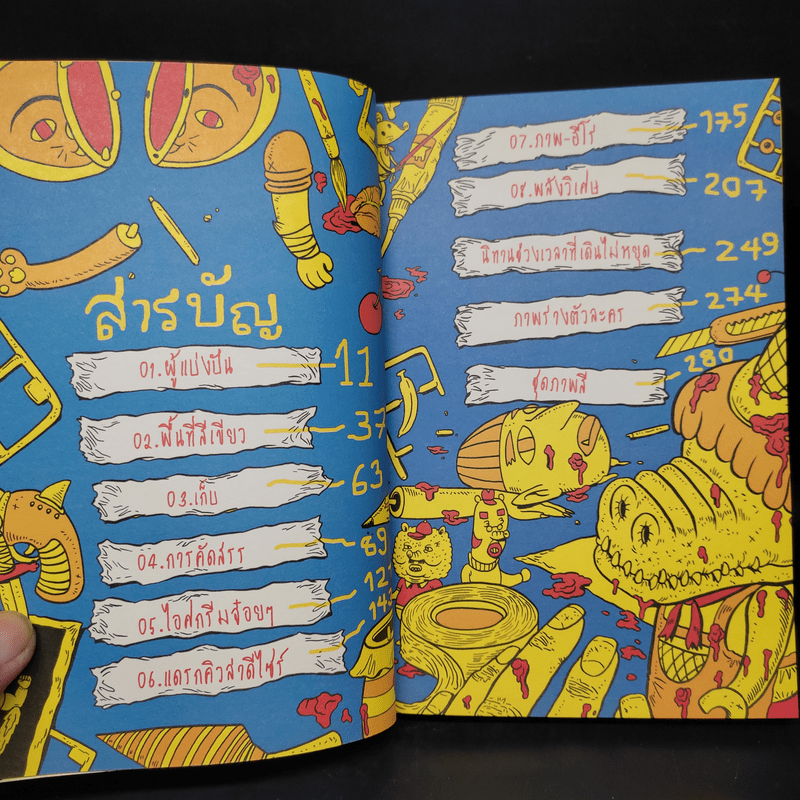 สารบัญ
01.ผู้แบ่งปัน 11
02.พื้นที่สีเขียว 37
03.เก็บ 63
04.การคัดสรร 89
05.ไอศกรีมจ๋อยๆ 12
06.แดรกคิวลาดีไซร์ 14
07.ภาพ-ฮีโร่ 175
08.พลังวิเศษ 207
นิทานช่วงเวลาที่เดินไม่หยุด 249
ภาพร่างตัวละคร 274
ชุดภาพสี 280